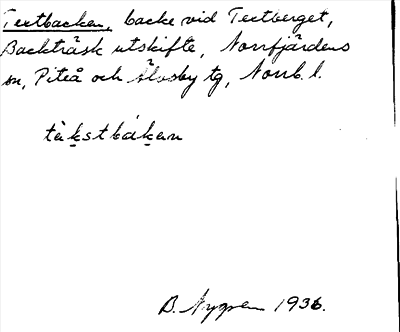 Textbacken, backe vid Textberget,
Backträsk utskifte, Norrfjärdens
sn, Piteå och Älvsby tg, Norrb. l.
tàk̲stbák̲an
B. Nygren 1936.